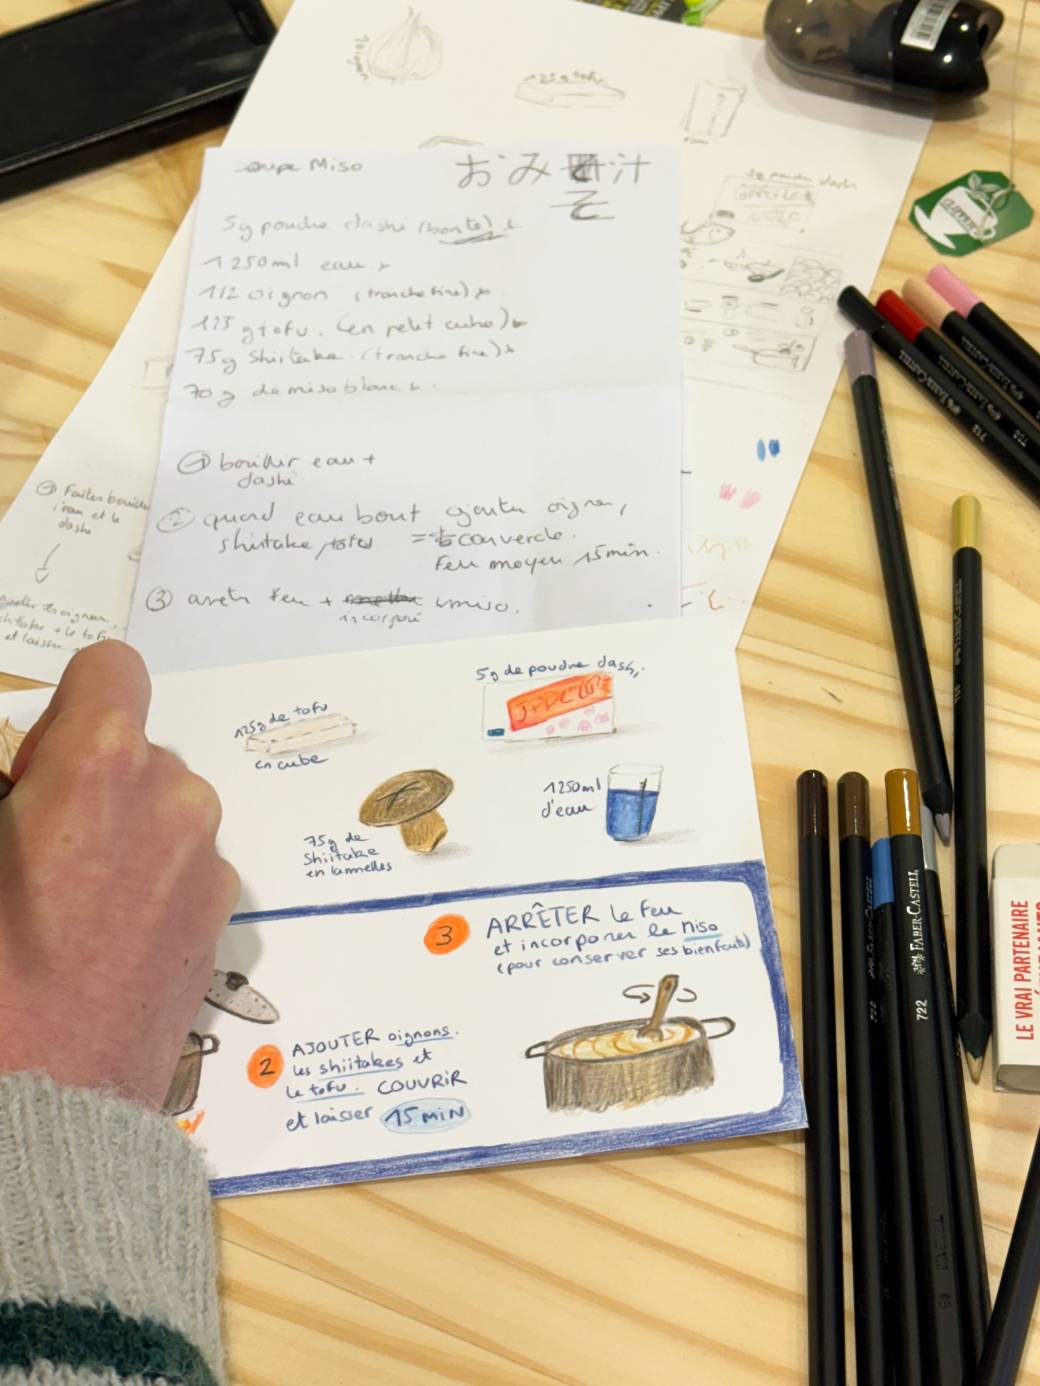 1 oignon
125g tofu
5g poudre dashi
CLIPPER
Soupe Miso
おみそ汁
そ
5g poudre dashi (bonite)
1250ml eau
1/2 oignon (tranche fine)
125 g tofu. (en petit cube)
75g Shiitake. (tranche fine)
70g de miso blanc
① bouillir eau +
dashi
② quand eau bout ajouter oignon,
shiitake, tofu = couvercle.
Feu moyen 15min.
③ arrêter feu + miso.
incorporé
① Faites bouillir
l'eau et le
dashi
shiitake + le tofu
et laisser
125g de tofu
en cube
5g de poudre dashi
75g de
Shiitake
en lamelles
1250ml
d'eau
3 ARRÊTER le feu
et incorporer le Miso
(pour conserver ses bienfaits)
2 AJOUTER oignons.
les shiitakes et
le tofu. COUVRIR
et laisser 15 MIN
FABER-CASTELL
722
FABER-CASTELL
712
LE VRAI PARTENAIRE